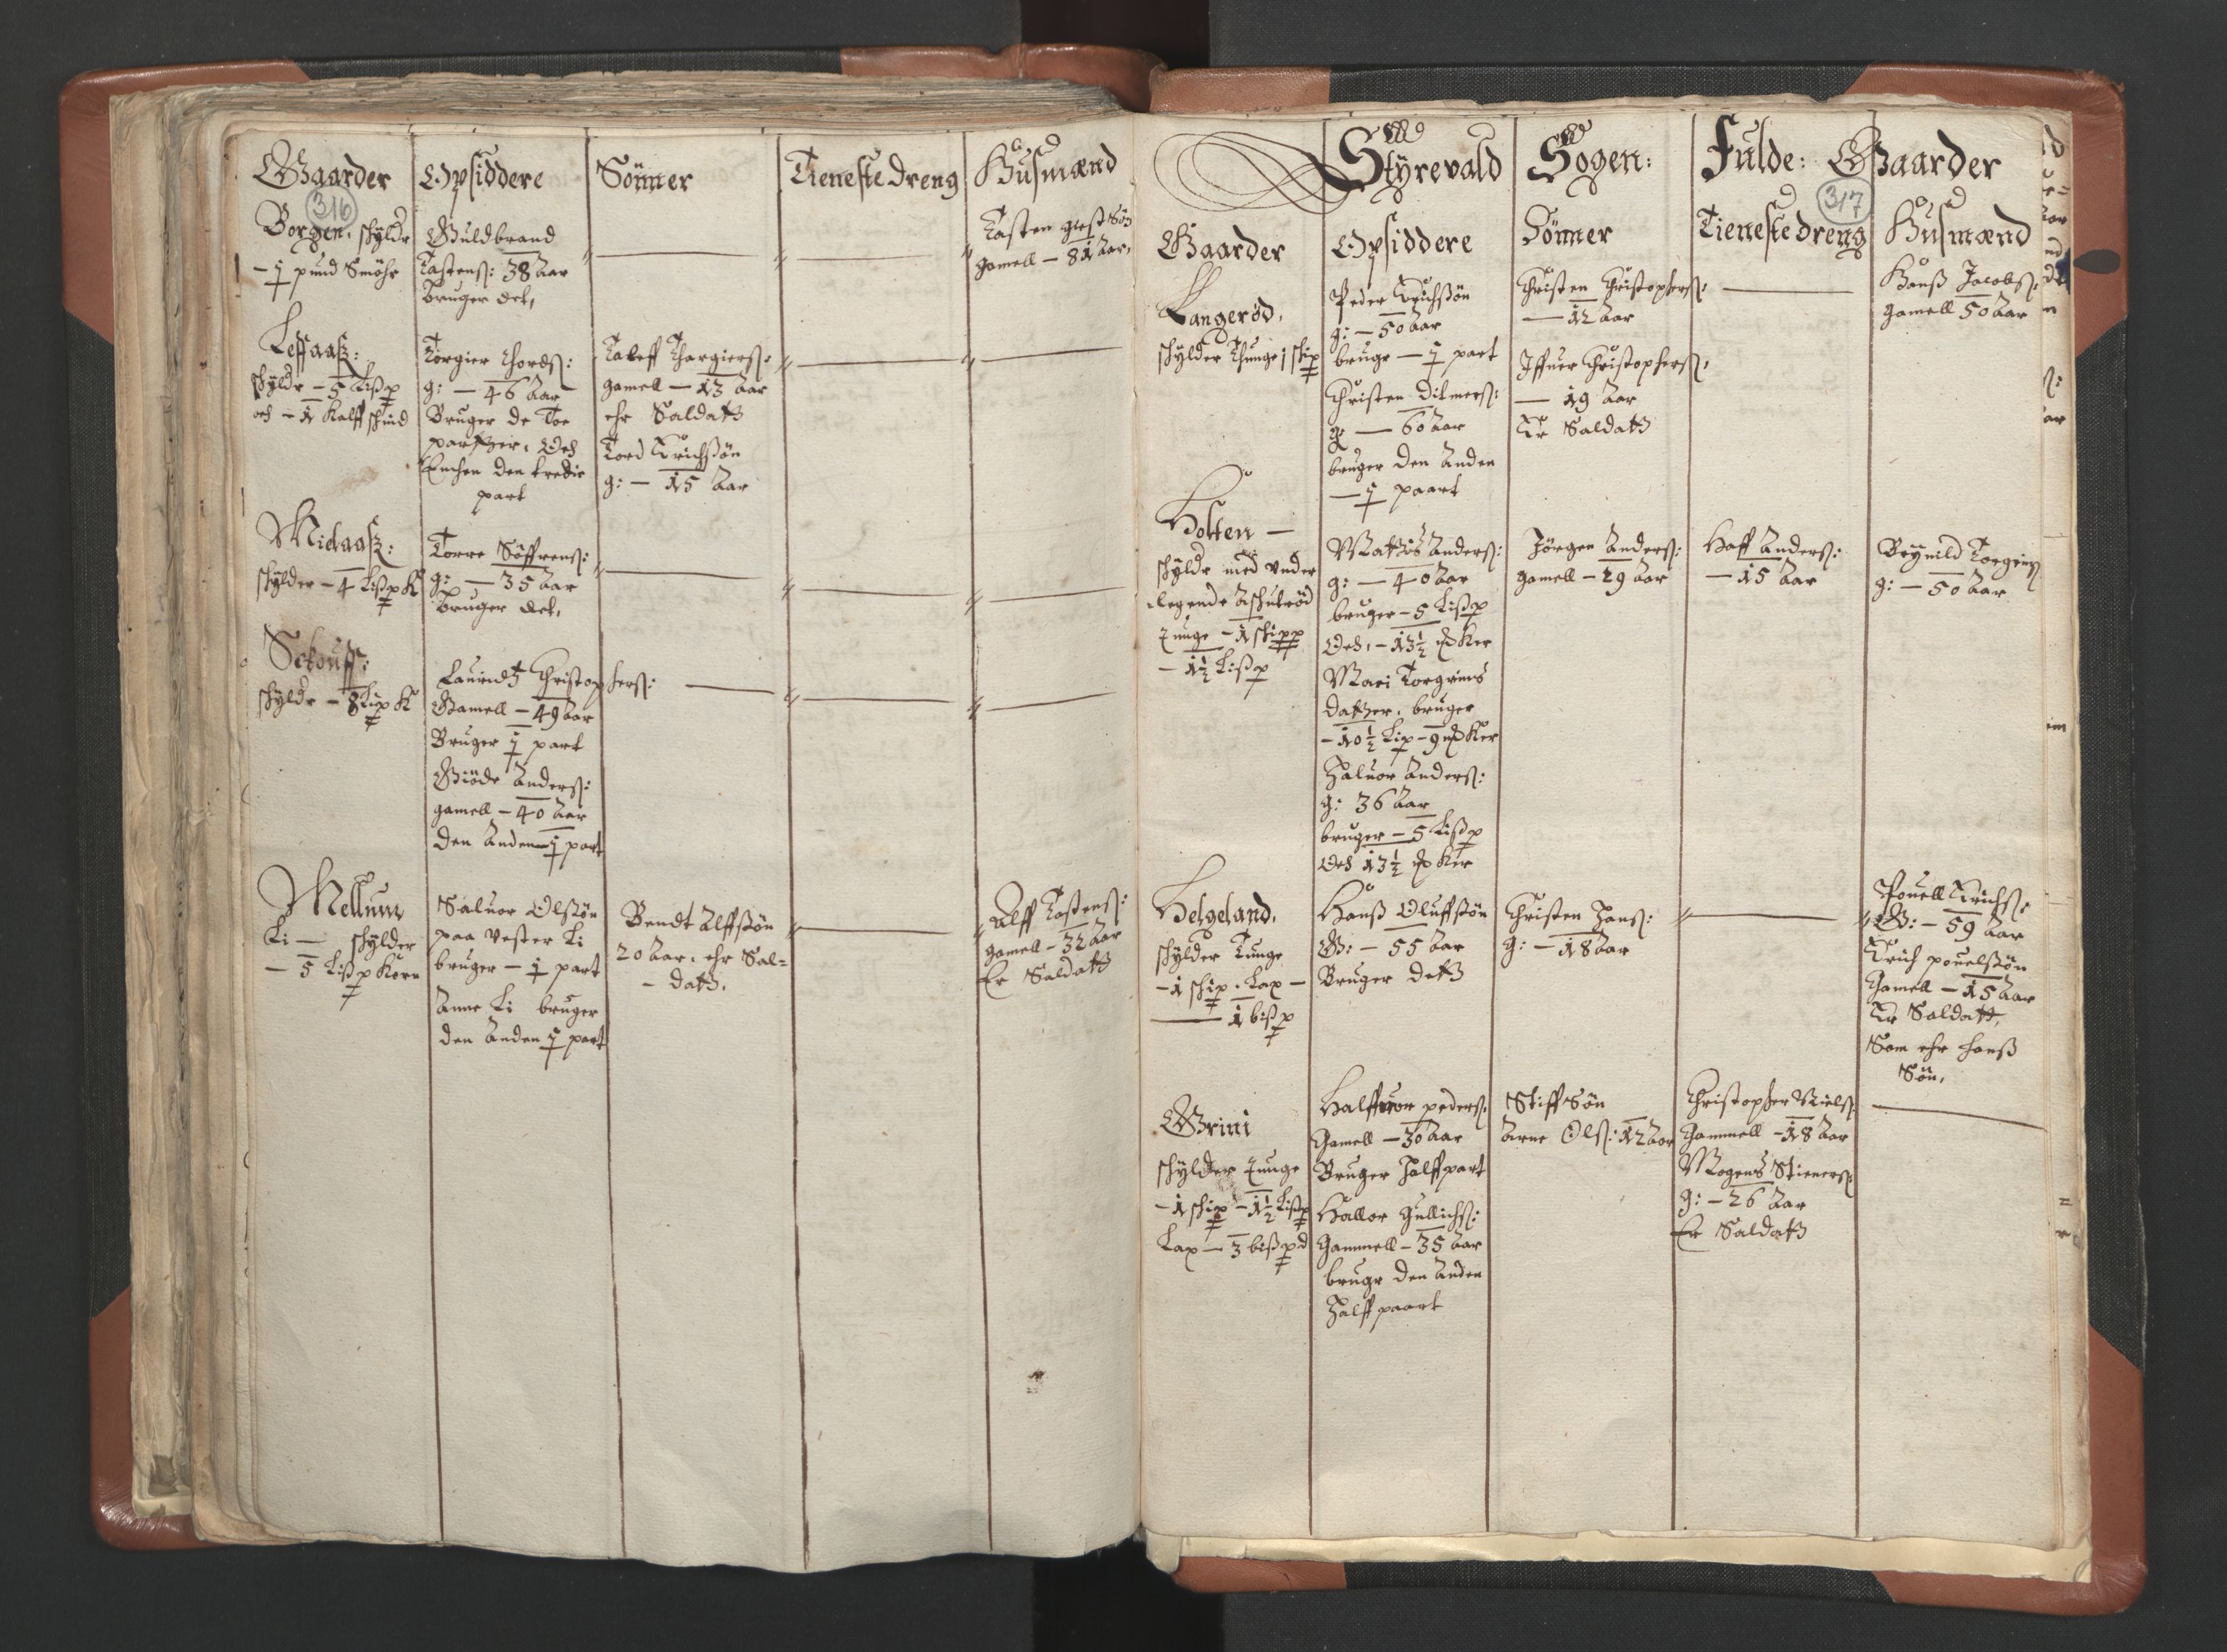 Gaarder
Opsiddere
Sönner
Tieneste dreng
Husmænd
316
Borgen. schylder
- ½ pund Smöhr
Guldbrand
Tastenß: 38 Aar
bruger det,
Tasten
gamell - 81 Aar,
Leffaaß:
schyldr - 5 Lißp
och - 1 Kalffschind
Torgier Thordß:
g: - 46 Aar
Bruger de Toe
parter. Och
Enchen den tredie
part
Taleff Thargierß:
gamell - 13 Aar
ehr Saldatt
Tord Erichßön
g: - 15 Aar
Midaaß:
schylder - 4 Lißp K
Torre Söffrenß:
g: - 35 Aar
bruger det,
schyldr - 8 Lißp K
Lauridtz Christophersß:
Gamell - 49 Aar
Bruger ½ part
Giöde Andersß:
gamell - 40 Aar
den Anden ½ part
Mellum
Li - schylder
- 5 Lißp Korn
Saluor Olßön
paa Vester Li
bruger - ½ part
Anne Li bruger
den Anden ½ part
Bendt Alffßön
20 Aar. ehr Sal=
- datt.
Alff Tastenß:
gamell - 32 Aar
Er Saldatt
Styrevald Sogen: Fulde: Gaarder
317
Gaarder
Opsiddere
Sönner
Tieneste dreng
Husmænd
Langeröd.
schylder Thunge 1 schip
Peder Erichßön
g: - 50 Aar
bruge - ½ part
Christen Ditmerß:
g - 60 Aar
bruger den Anden
- ½ paart
Christen Christopherß:
- 12 Aar
Iffuer Christopherß:
- 19 Aar
Er Saldatt
Hanß Jacobß:
gamell 50 Aar
Holten -
schyldr med under
liegende Aschulröd
Tunge - 1 schipp
- 1½ Lißp
Matthis Anderß:
g: - 40 Aar
bruger - 5 Lißp
Och. - 13½ Ker
Mari Torgrims
datter. bruger
- 10½ Lip - 9 Ker
Haluor Anderß:
g: 36 Aar
bruger - 5 Lißp
Och 13½ Ker
Jörgen Anderß:
gamell - 29 Aar
Haff Anderß:
- 15 Aar
Brynild
g: - 50 Aar
Helgeland.
schylder Tunge
- 1 schip. Lax -
- 1 bißp
Hanß Oluffßön
G: - 55 Aar
Bruger dett
Christen Hanß:
g: - 18 Aar
Pouell Erichß:
G: - 59 Aar
Erich pouelßön
Gamell - 15 Aar
Er Saldatt,
Som ehr hanß
Sön.
Grini
schylder Tunge
- 1 schip - 1½ Lißp
Lax - 3 bißpd
Halffuor pederß:
Gamell - 30 Aar
Bruger Halffpart
Hallor Gullichß:
Gammell - 35 Aar
bruger den Anden
Halff paart
Stiffsön
Arne Olß: 12 Aar
Christopher Nielß:
Gammell - 18 Aar
Mogens Stienerß:
g: - 26 Aar
Er Saldatt